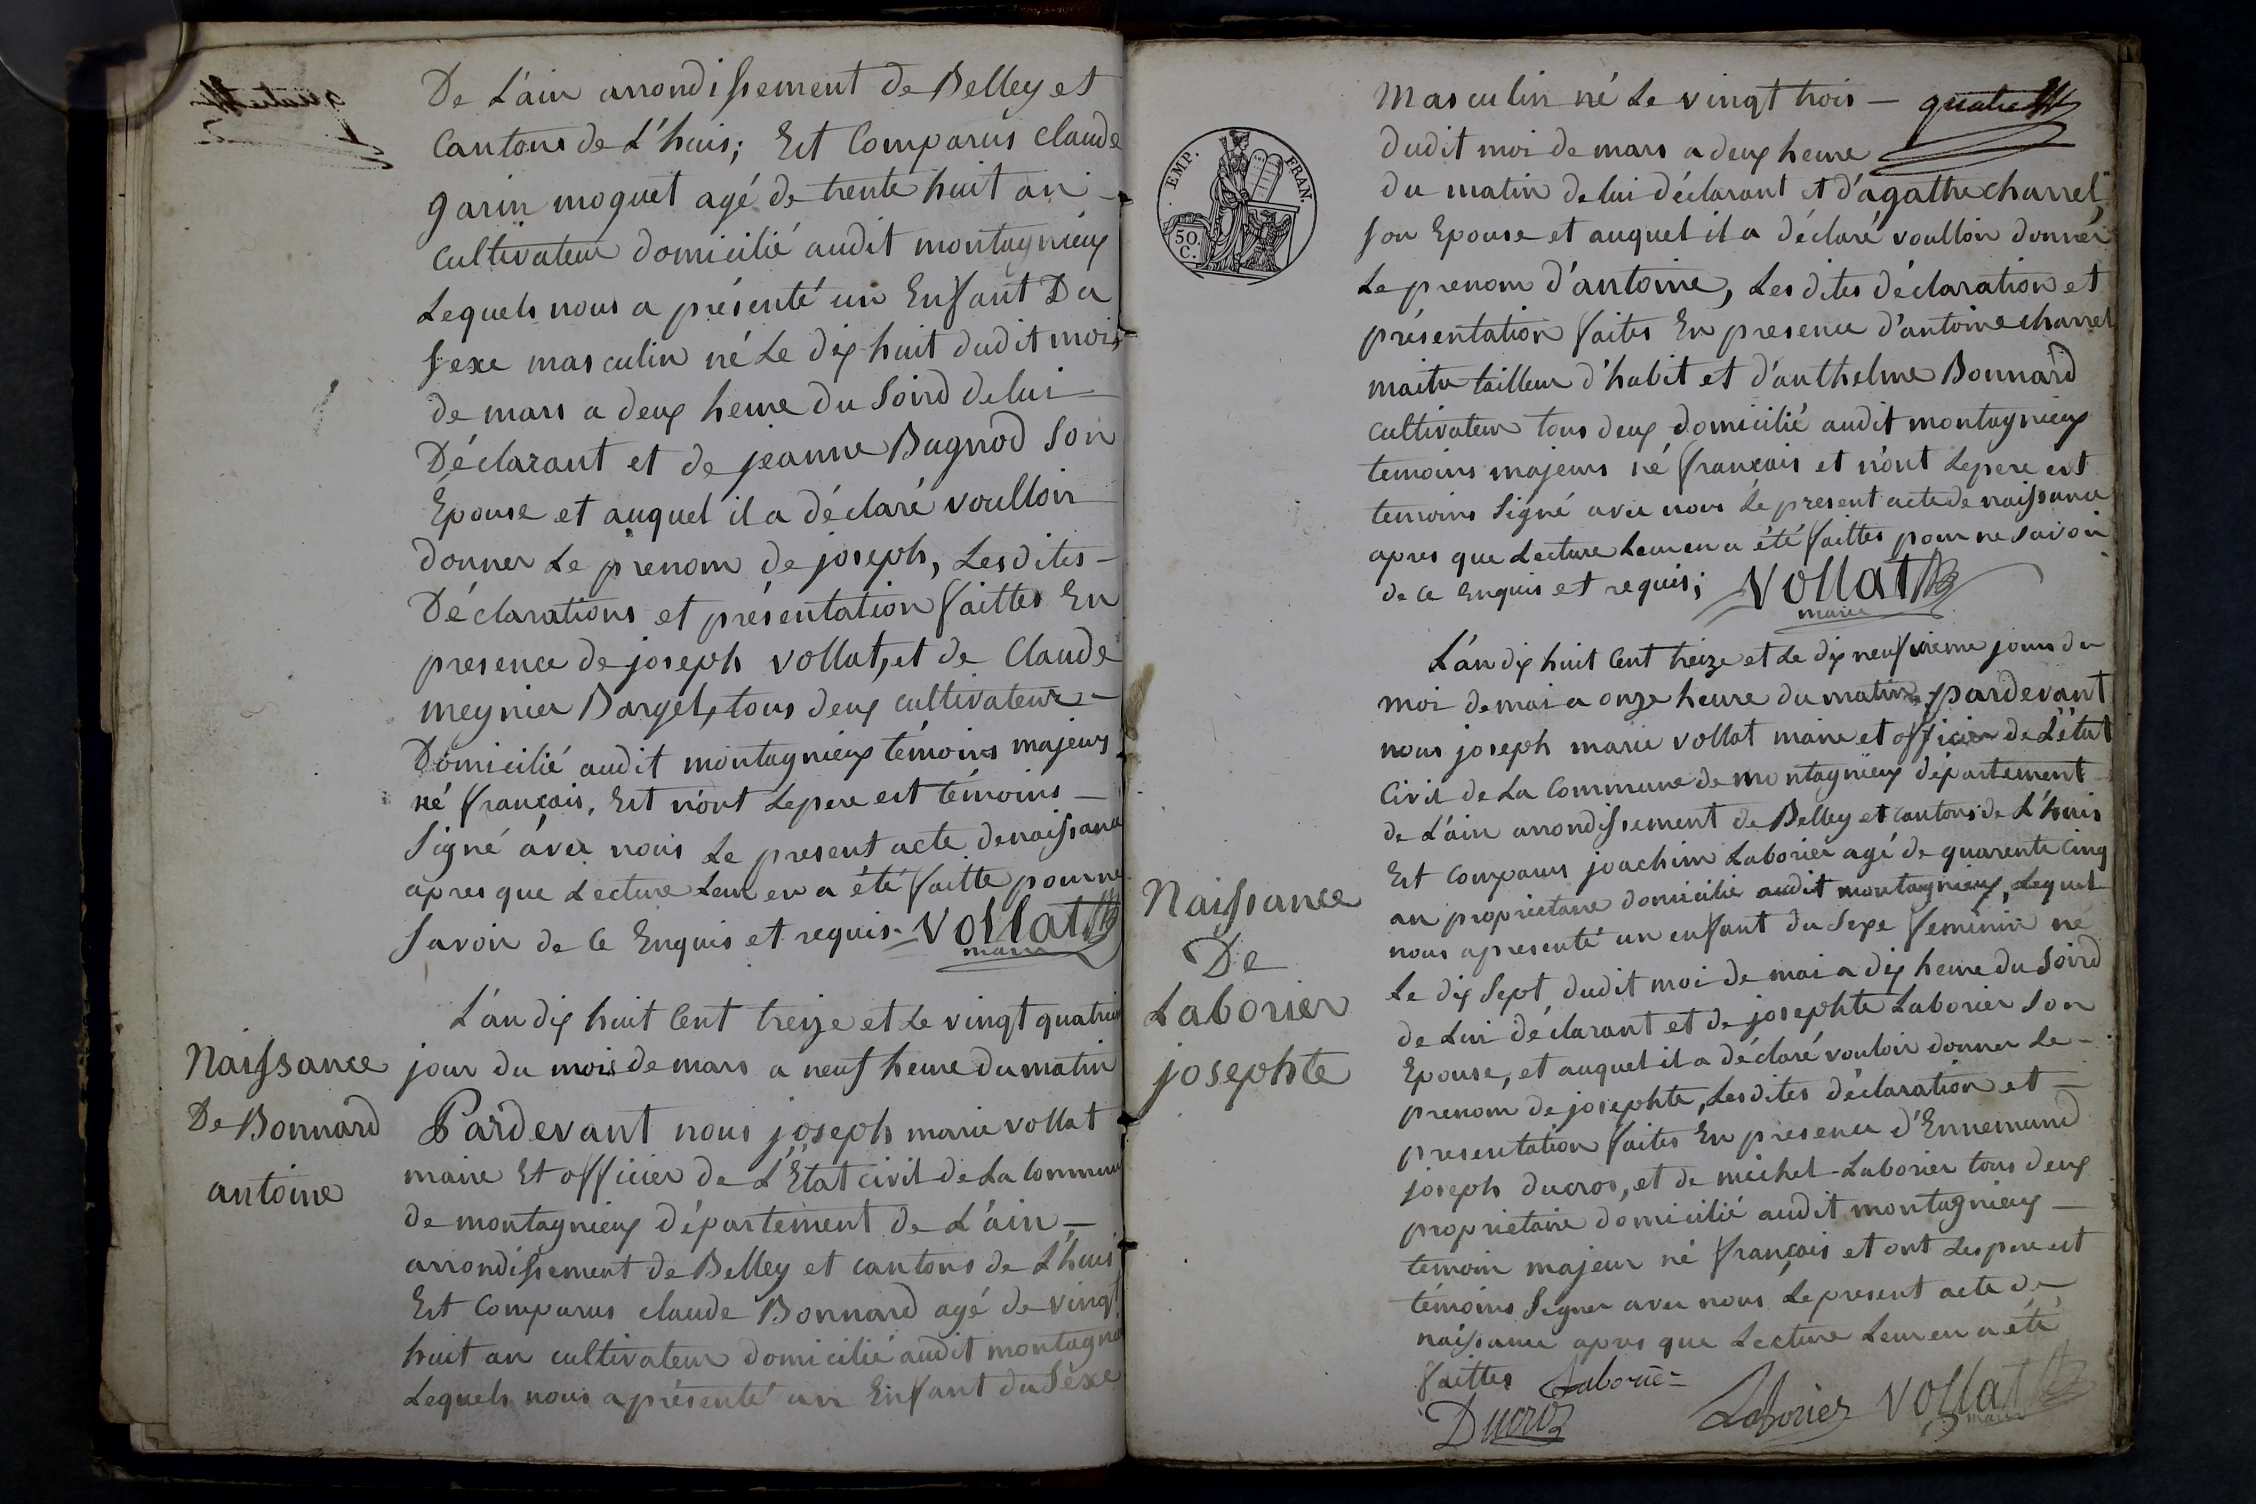 De L'ain arrondissement de Belley et
Cantons de L'huis; Est Comparus Claude
garin moquet agé de trente huit an
cultivateur domicilié audit montagnieux
Lequels nous a présenté un Enfant Du
sexe masculin né Le dix huit dudit mois
de mars a deux heure Du Soird de lui
Déclarant et de jeanne Bagnod Son
Épouse et auquel il a déclaré voulloir
donner Le prenom de joseph, Lesdites
Déclarations et présentation faittes En
presence de joseph vollat, et de Claude
meynier Bargel, tous deux cultivateur
Domicilié audit montagnieux témoins majeurs
né français, Est n'ont Lepere est témoins
Signé avec nous Le present acte de naissance
apres que Lecture Leur en a été faitte pour ne
Savoir de Ce Enquis et requis. Vollat
maire
Naissance
De Bonnard
antoine
L'an dix huit Cent treize et Le vingt quatrieme
jour du mois de mars a neuf heure du matin
Pardevant nous joseph marie vollat
maire Et officier de L'Etat civil de La Commune
de montagnieux département de L'ain
arrondissement de Belley et cantons de L'huis
Est Comparus claude Bonnard agé de vingt
huit an cultivateur domicilié audit montagnieux
Lequels nous a présenté un Enfant du Sexe
quatre
EMP. FRAN.
50. C.
Masculin né Le vingt trois
dudit moi de mars a deux heure
du matin de lui déclarant et d'agathe charrel
son Epouse et auquel il a déclaré voulloir donner
Le prenom d'antoine, Lesdites déclaration et
présentation faites En presence d'antoine charrel
maitre tailleur d'habit et d'anthelme Bonnard
cultivateur tous deux domicilié audit montagnieux
temoins majeurs né français et n'ont Lepere est
temoins Signé avec nous Le present acte de naissance
apres que Lecture Leur en a été faittes pour ne savoir
de Ce Enquis et requis; Vollat
maire
Naissance
De
Laborier
josephte
L'an dix huit Cent treize et Le dix neufvieme jours du
moi de mai a onze heure du matin, pardevant
nous joseph marie vollat maire et officier de L'état
Civil de La Commune de montagnieux département
de L'ain arrondissement de Belley et cantons de L'huis
Est Comparus joachim Laborier agé de quarente Cinq
an propriétaire domicilié audit montagnieux, Lequel
nous a presenté un enfant du Sexe feminin né
Le dix Sept dudit moi de mai a dix heure du Soird
de Lui déclarant et de josephte Laborier Son
Epouse, et auquel il a déclaré vouloir donner Le
prenom de josephte, Lesdites déclaration et
presentation faites En presence d'Ennemend
joseph ducros, et de michel Laborier tous deux
proprietaire domicilié audit montagnieux
témoin majeur né français et ont Lespere est
témoins Signer avec nous Le present acte de
naissance apres que Lecture Leur en a été
faittes Laborie
Ducros Laborier Vollat
maire